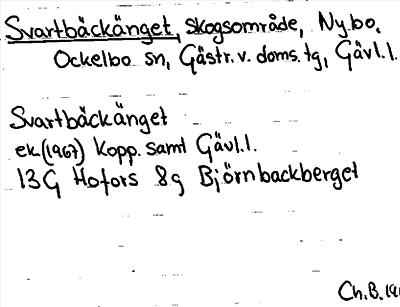 Svartbäckänget, skogsområde, Nybo,
Ockelbo sn, Gästr.v. doms.tg, Gävl.l.
Svartbäckänget
ek(1967) Kopp. samt Gävl.l.
13G Hofors 8g Björnbackberget
Ch.B. 19